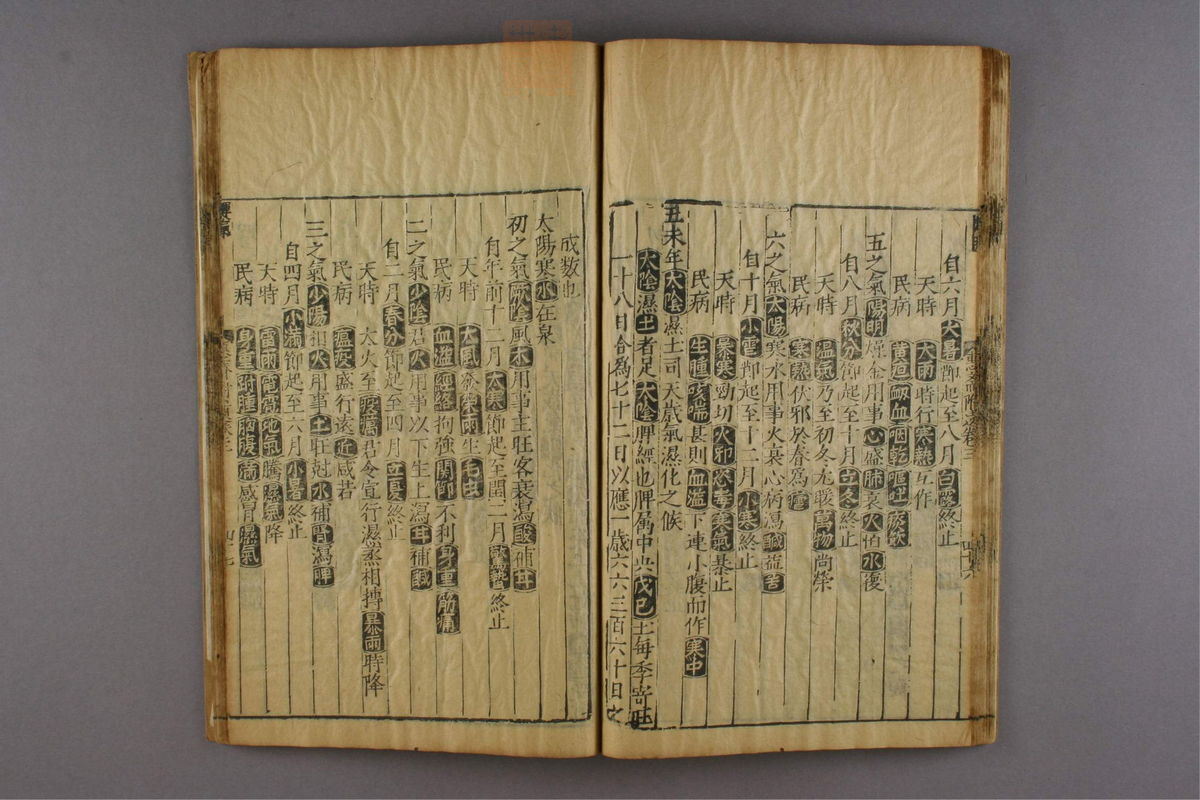 自六月大暑節起至八月白露終止
天時 大雨時行寒熱互作
民病 黄疸衂血咽乾嘔吐痰飲
五之氣陽明燥金用事心盛肺衰火怕水復
自八月秋分節起至十月立冬終止
天時 温氣乃至初冬尤暖萬物尚榮
民病 寒熱伏邪於春為瘧
六之氣太陽寒水用事火衰心病瀉鹹益苦
自十月小雪節起至十二月小寒終止
天時 暴寒勁切火邪恣毒寒氣暴止
民病 生腫咳喘甚則血溢下連小腹而作寒中
丑未年太陰濕土司天歳氣濕化之候
太陰濕土者足太陰脾經也脾属中央戊己土每季寄旺
一十八日合為七十二日以應一歳六六三百六十日之
成数也
太陽寒水在泉
初之氣厥陰風木用事主旺客衰瀉酸補甘
自年前十二月大寒節起至閏二月驚蟄終止
天時 大風發榮雨生毛虫
民病 血溢經絡拘強關節不利身重筋痛
二之氣少陰君火用事以下生上瀉甘補鹹
自二月春分節起至四月立夏終止
天時 大火至疫癘君令宣行濕蒸相搏暴雨時降
民病 瘟疫盛行遠近咸若
三之氣少陽相火用事土旺尅水補腎瀉脾
自四月小滿節起至六月小暑終止
天時 雷雨電雹地氣騰濕氣降
民病 身重跗腫胸腹滿感冒濕氣